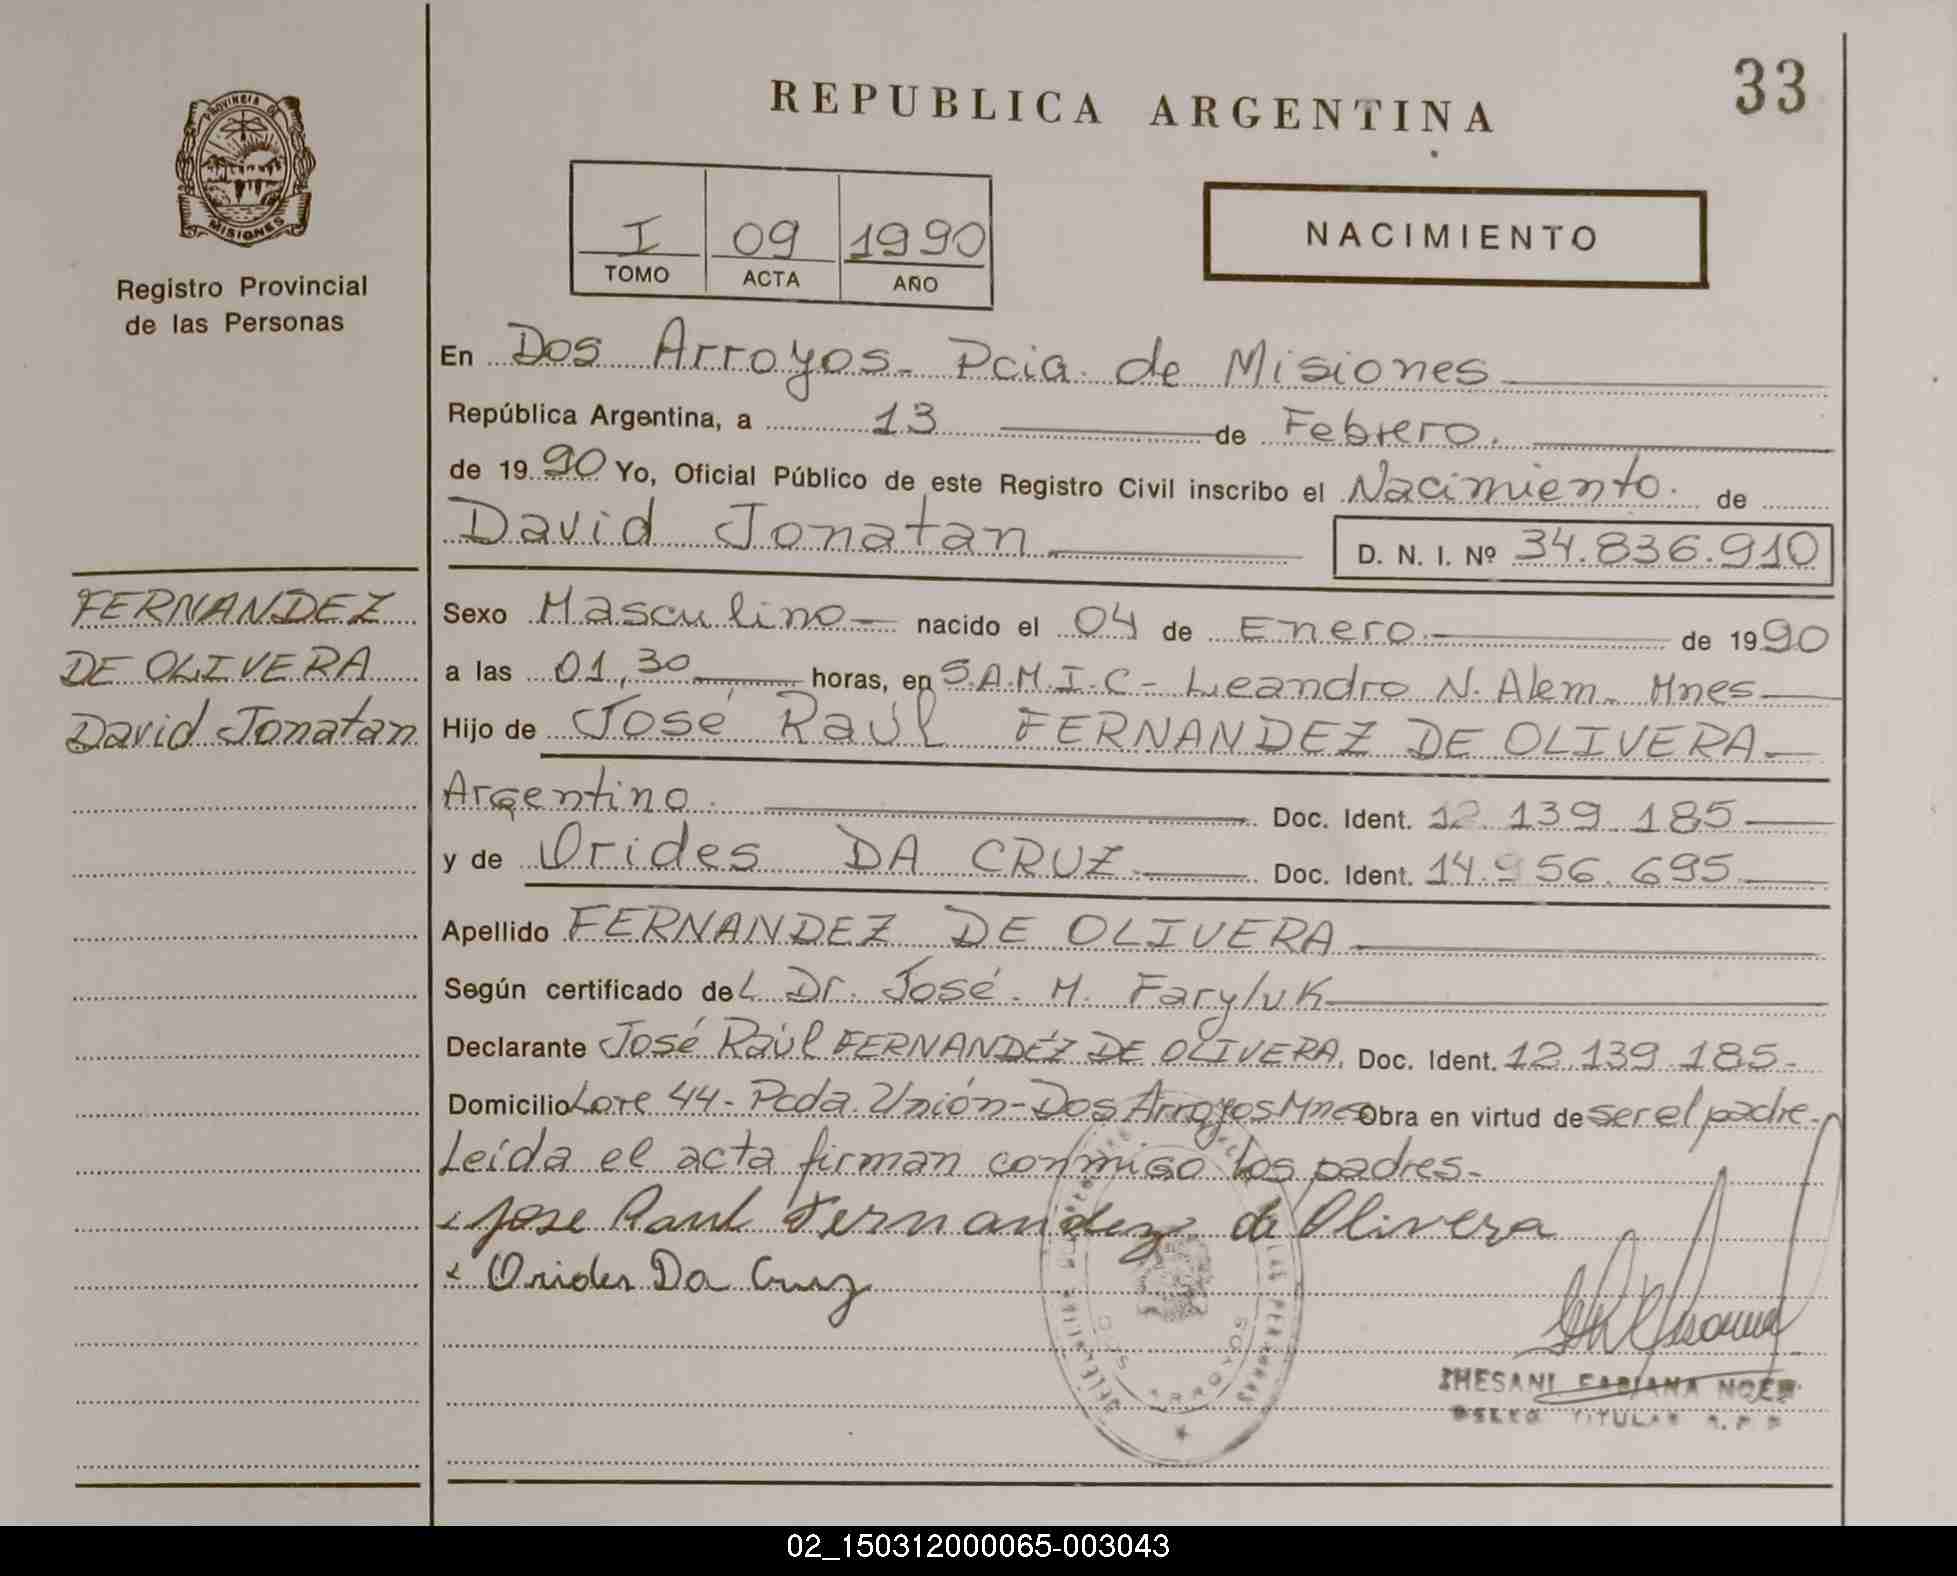 REPUBLICA ARGENTINA
33
PROVINCIA DE
MISIONES
Registro Provincial
de las Personas
I 09 1990
TOMO ACTA AÑO
NACIMIENTO
En Dos Arroyos - Pcia. de Misiones
República Argentina, a 13 de Febrero.
de 1990 Yo, Oficial Público de este Registro Civil inscribo el Nacimiento. de
David Jonatan D. N. I. Nº 34.836.910
FERNANDEZ
DE OLIVERA
David Jonatan
Sexo Masculino nacido el 04 de Enero. de 1990
a las 01,30 horas, en S.A.M.I.C - Leandro N. Alem - Mnes
Hijo de José Raúl FERNANDEZ DE OLIVERA
Argentino. Doc. Ident. 12.139.185
y de Orides DA CRUZ Doc. Ident. 14.956.695
Apellido FERNANDEZ DE OLIVERA
Según certificado del Dr. José. M. Farylvk
Declarante José Raúl FERNANDÉZ DE OLIVERA. Doc. Ident. 12.139.185-
Domicilio Lote 44 - Pcda. Unión - Dos Arroyos Mnes Obra en virtud de ser el padre.
Leída el acta firman conmigo los padres-
Jose Raul Fernandez de Olivera
x Orides Da Cruz
DOS ARROYOS
FABIANA
TITULAR
02_150312000065-003043